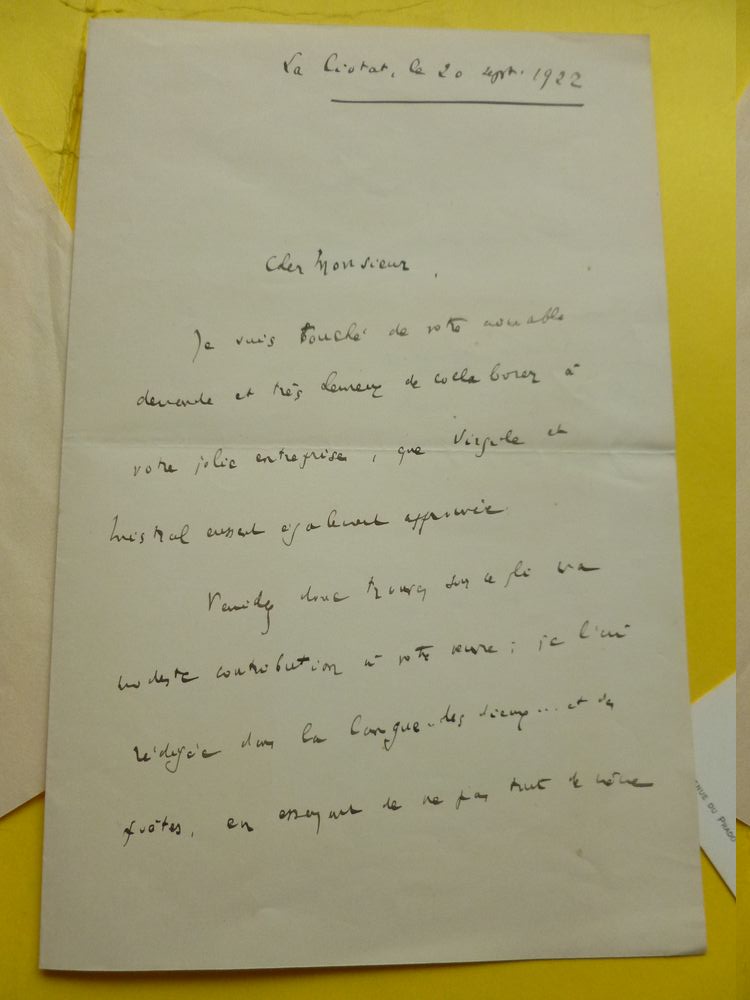 La Ciotat, le 20 sept. 1922
Cher Monsieur,
Je suis touché de votre aimable
demande et très heureux de collaborer à
votre jolie entreprise, que Virgile et
Mistral eussent également approuvée.
Veuillez donc trouver sous ce pli ma
modeste contribution à votre œuvre ; je l'ai
rédigée dans la langue des dieux... et des
poètes, en essayant de ne pas tout de même
ENUE DU PRADO